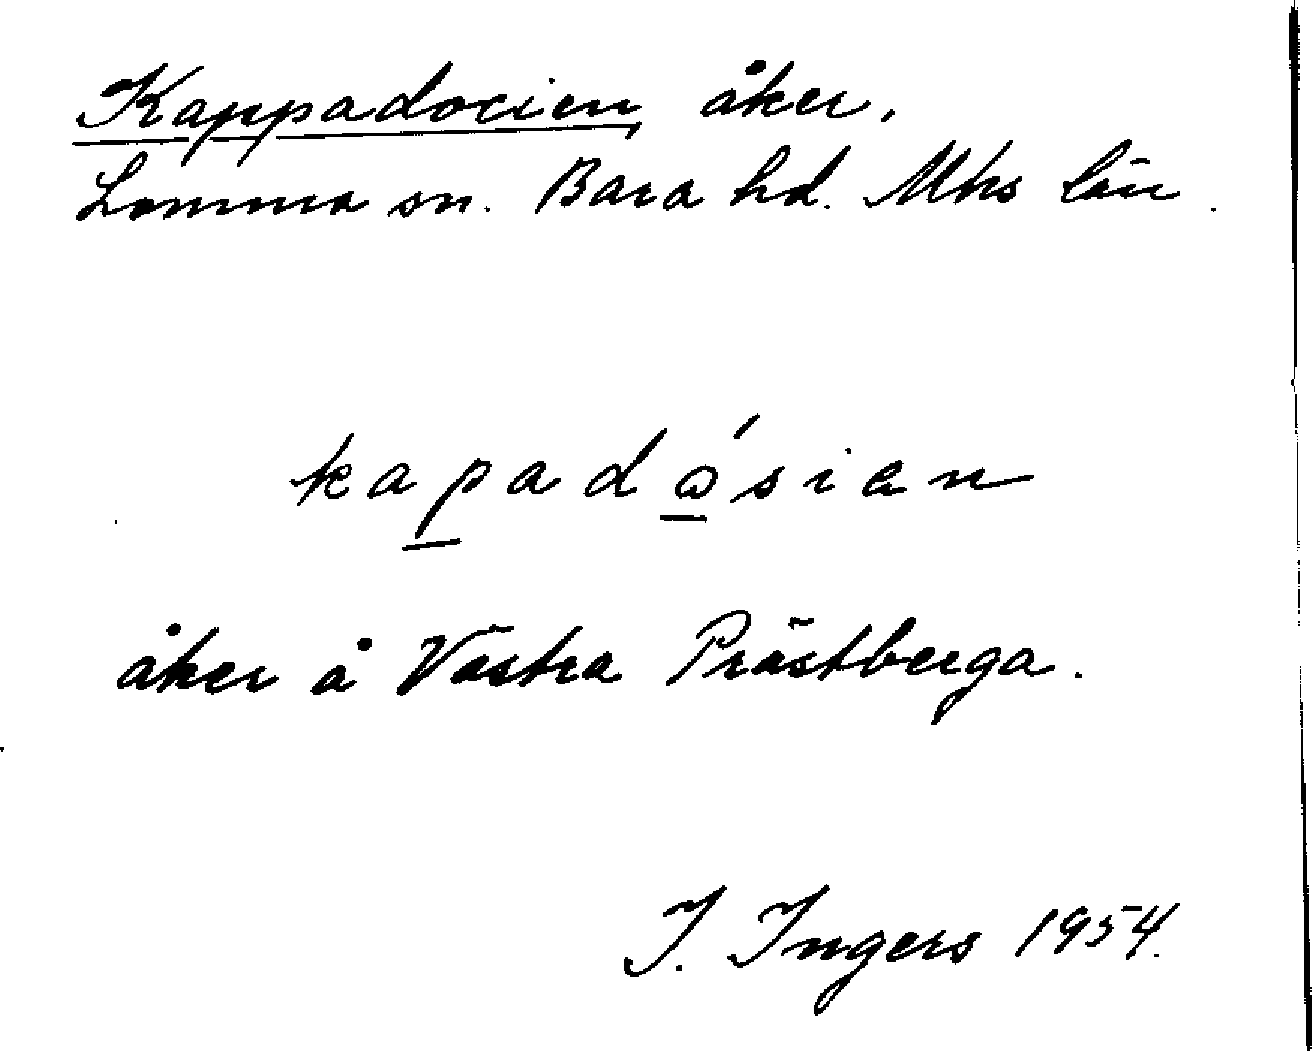 Kappadocien, åker.
Lomma sn. Bara hd. Mhs län.
kapadåsien
åker å Västra Prästberga.
I. Ingers 1954.